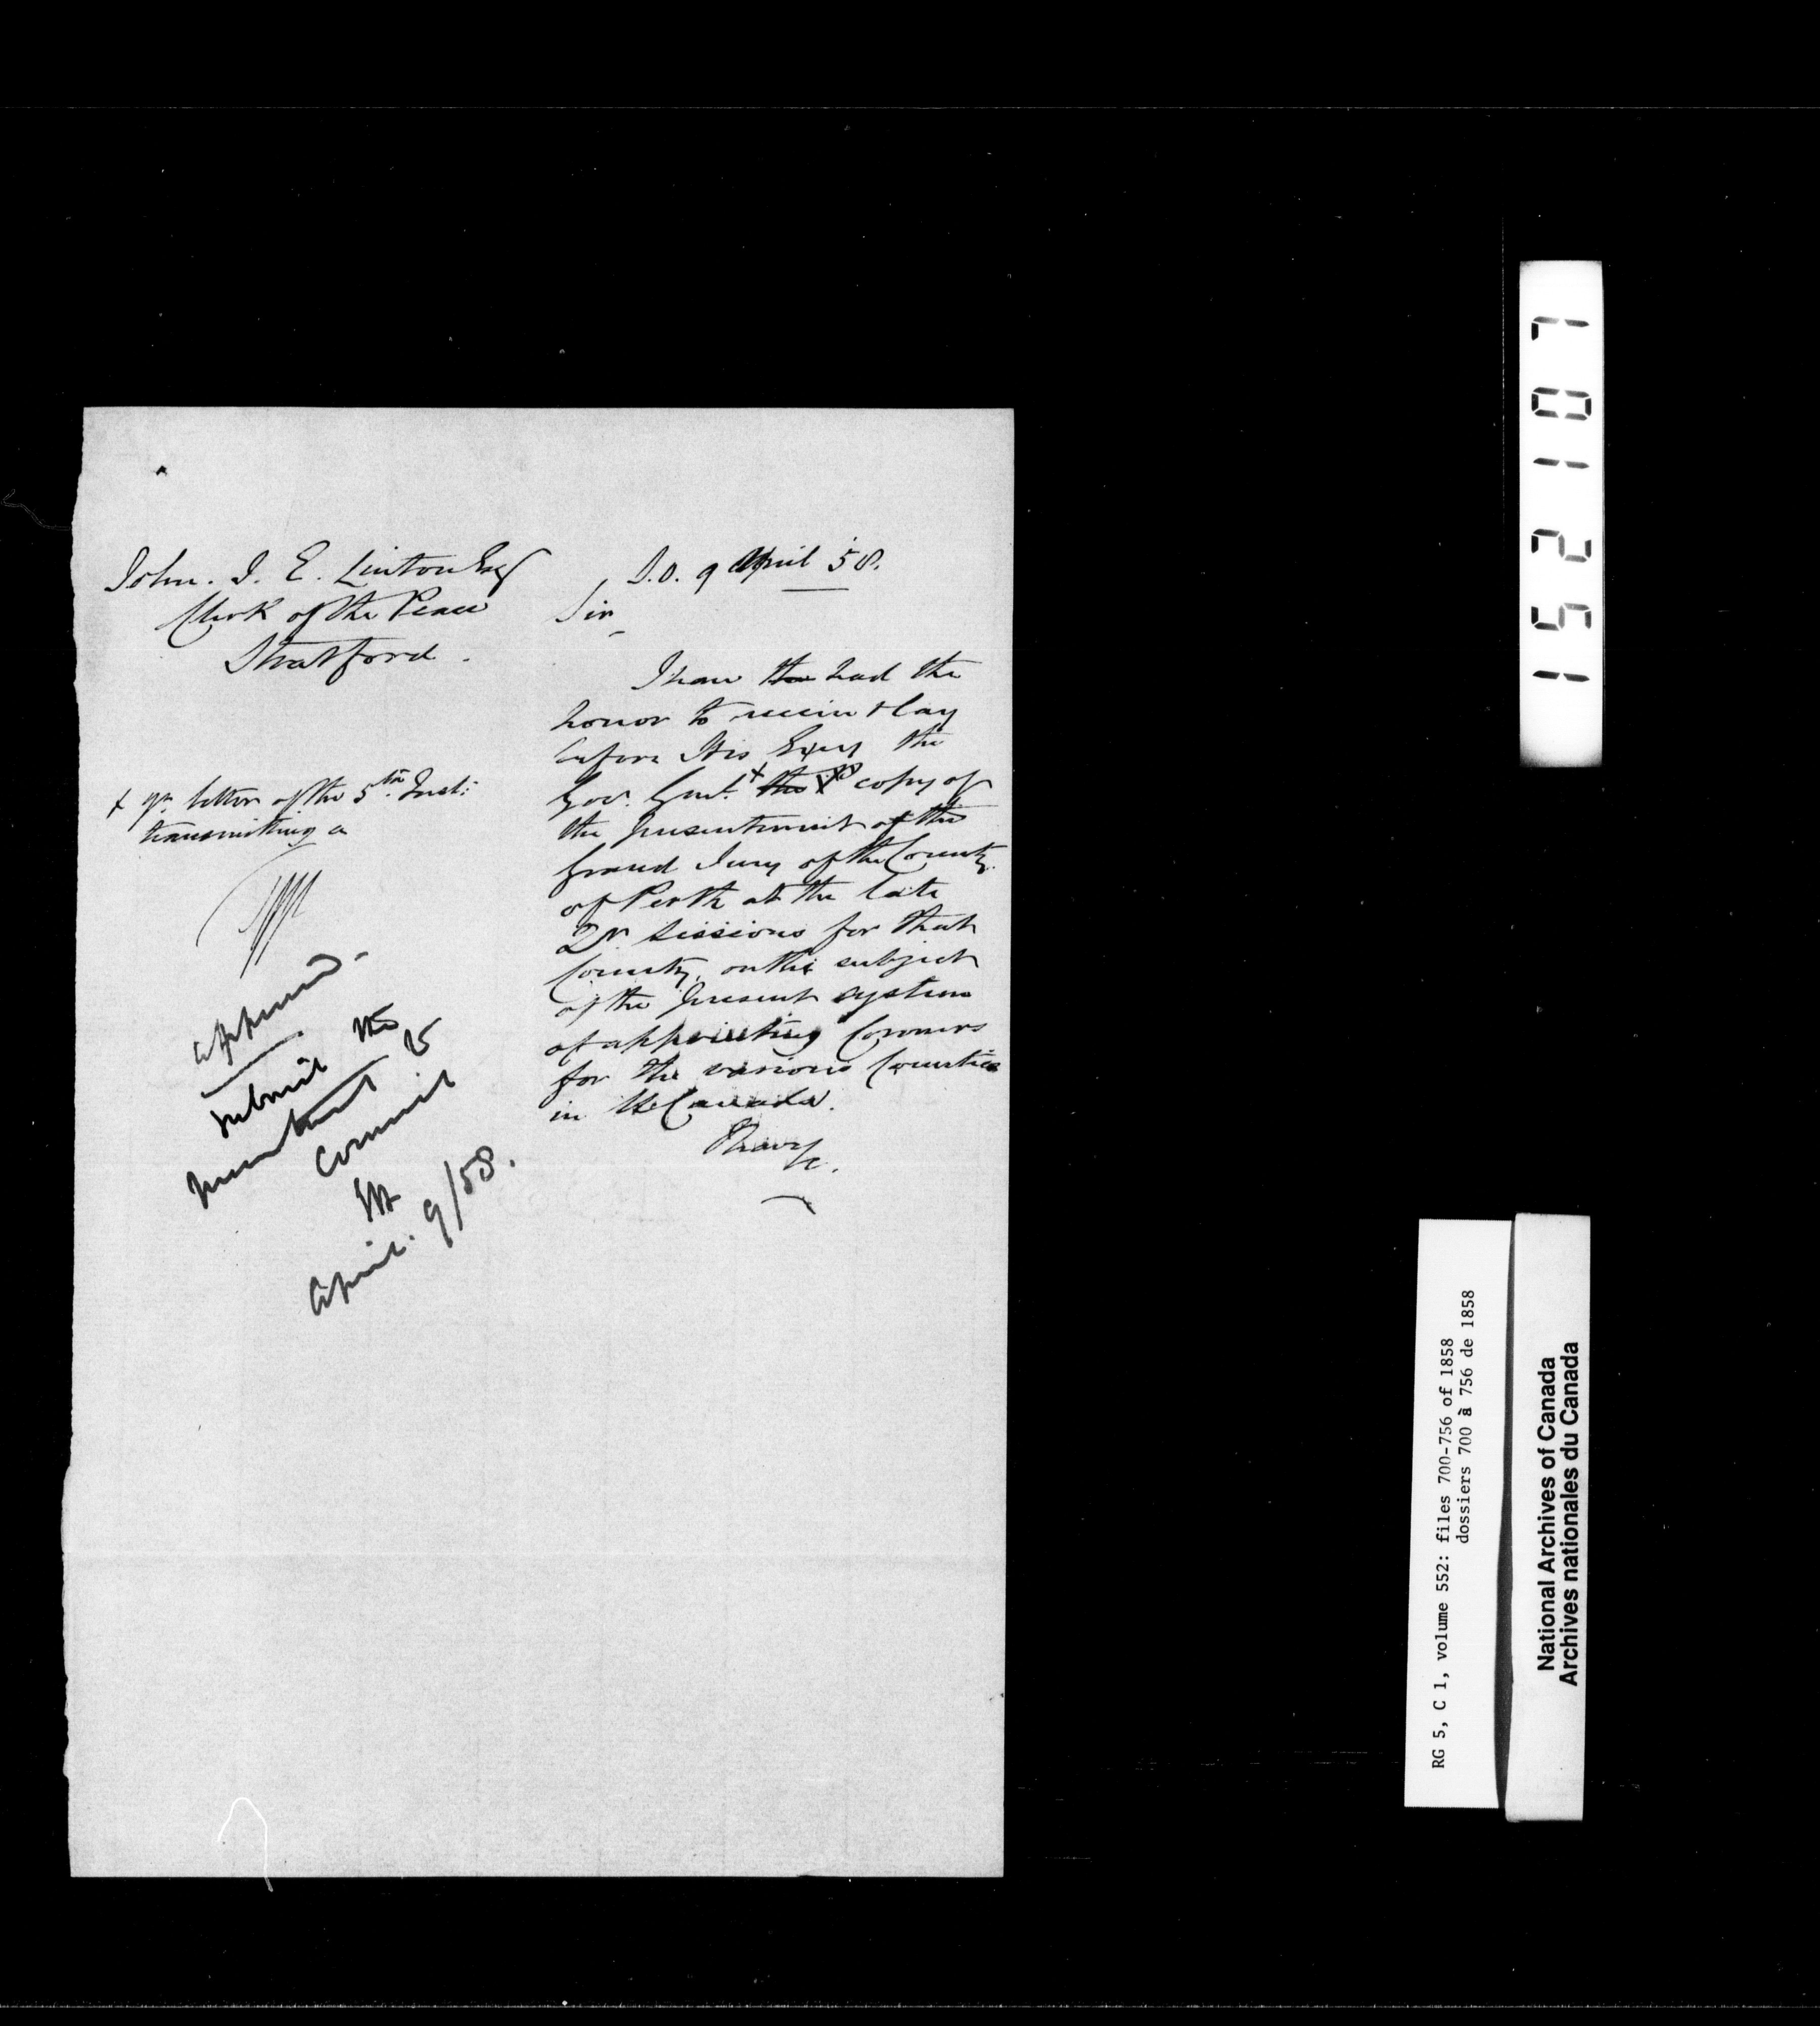 John. J. E. Linton Esq
Clerk of the Peace
Stratford.
S.O. 9 April '58.
Sir
I have the had the
honor to receive & lay
before His Excy the
Gov. Genl. x the copy of
the Presentment of the
Grand Jury of the County
of Perth at the late
Qr. Sessions for that
County, on the subject
of the present system
of appointing Coroners
for the various Counties
in U. Canada.
I have &c.
x yr. letter of the 5th Inst:
transmitting a
approved.
submit the
presentment to
Council
April. 9/58.
152107
RG 5, C 1, volume 552: files 700-756 of 1858
dossiers 700 à 756 de 1858
National Archives of Canada
Archives nationales du Canada